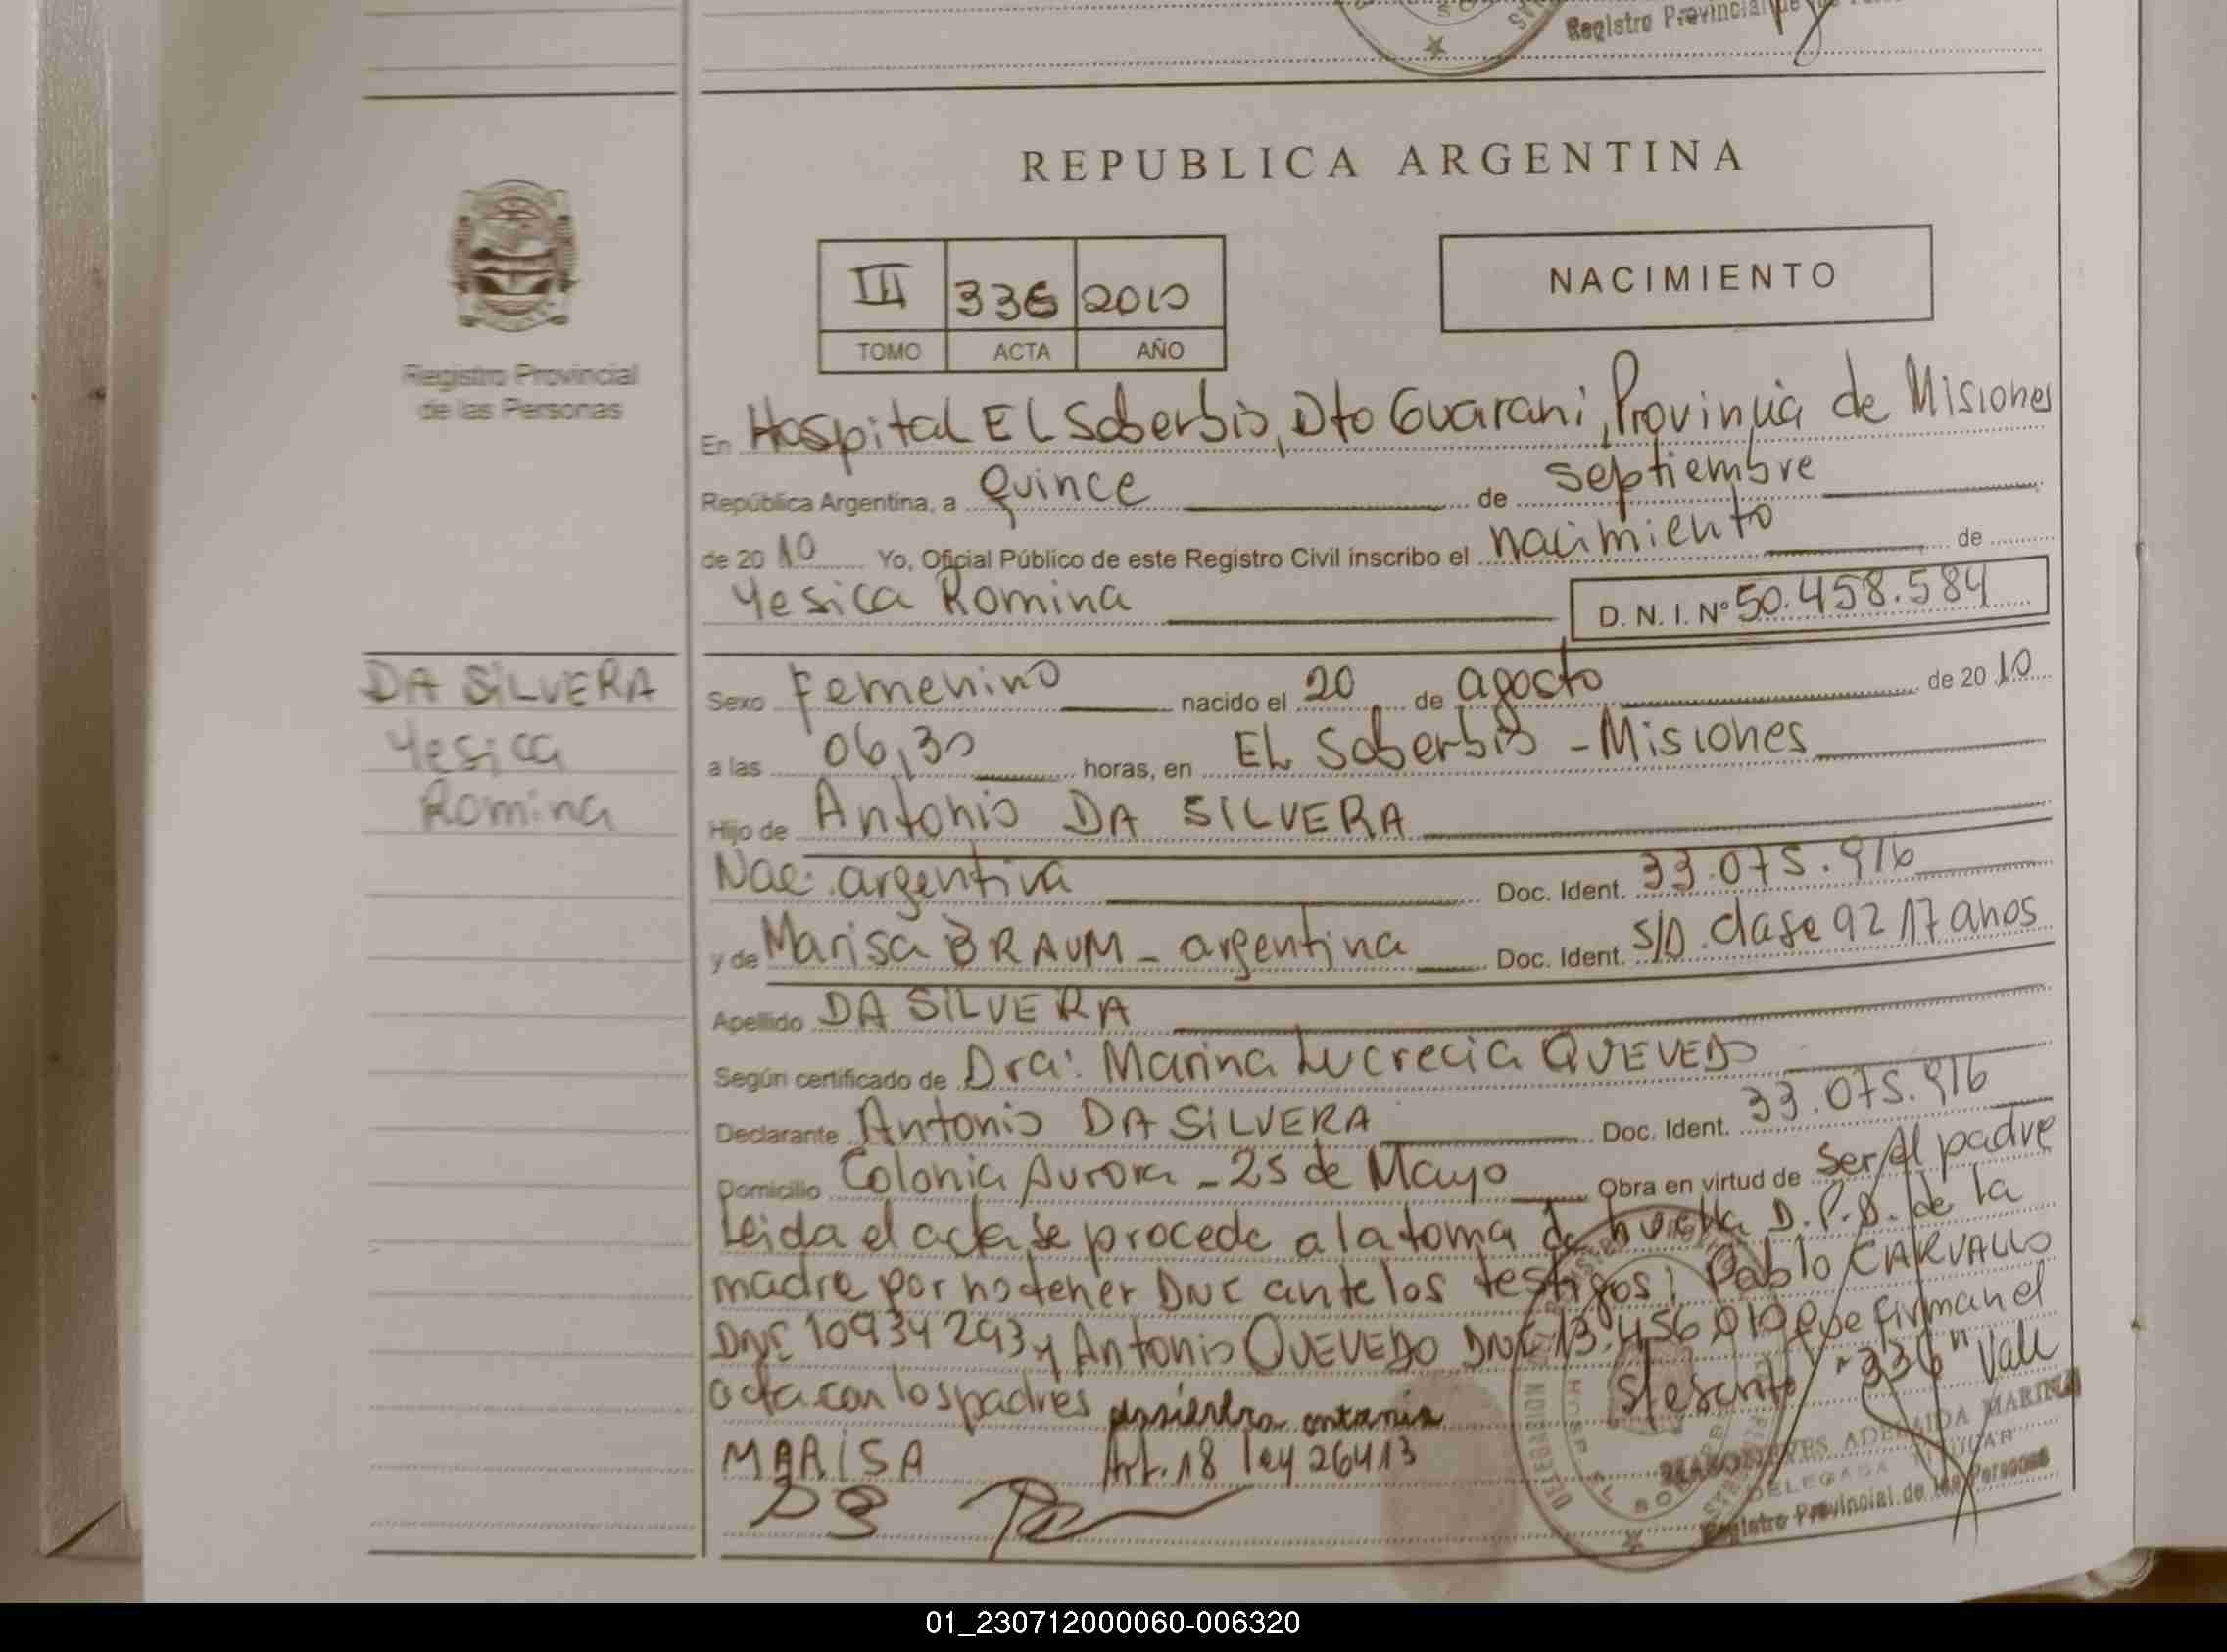 Registro Provincial de
REPUBLICA ARGENTINA
III 336 2010
TOMO ACTA AÑO
NACIMIENTO
Registro Provincial
de las Personas
En Hospital EL Soberbio, Dto Guarani, Provincia de Misiones
República Argentina, a Quince de septiembre
de 2010 Yo, Oficial Público de este Registro Civil inscribo el nacimiento de
Yesica Romina D. N. I. Nº 50.458.584
DA SILVERA
Yesica
Romina
Sexo Femenino nacido el 20 de agosto de 2010
a las 06,30 horas, en EL Soberbio - Misiones
Hijo de Antonio DA SILVERA
Nac. argentina Doc. Ident. 33.075.916
y de Marisa BRAUM - argentina Doc. Ident. S/D. clase 92 17 años
Apellido DA SILVERA
Según certificado de Dra: Marina Lucrecia QUEVEDO
Declarante Antonio DA SILVERA Doc. Ident. 33.075.916
Domicilio Colonia Aurora - 25 de Mayo Obra en virtud de Ser el padre
Leida el acta se procede a la toma de huella D.P.D. de la
madre por no tener DNI ante los testigos: Pablo CARVALLO
DNI 10934293 y Antonio QUEVEDO DNI 13.456.010 que firman el
acta con los padres S/escrito "336" Vale
MARISA Art. 18 ley 26413
ADELAIDA MARINA
DELEGADA TITULAR
Registro Provincial de las Personas
01_230712000060-006320